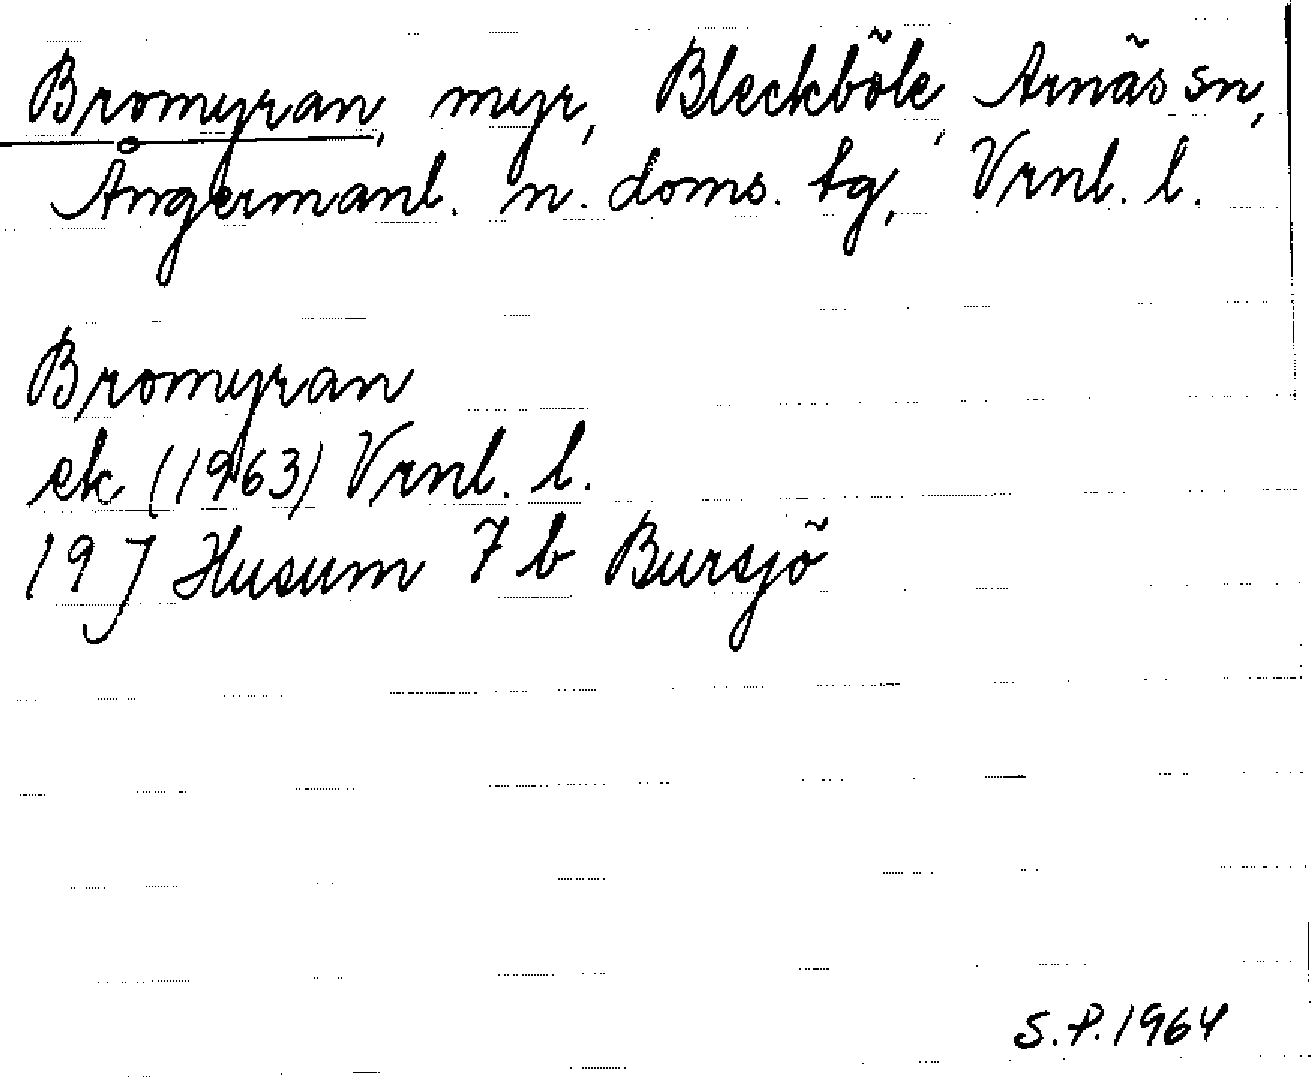 Bromyran, myr, Bleckböle, Arnäs sn,
Ångermanl. n. doms. tg, Vrnl. l.
Bromyran
ek (1963) Vrnl. l.
19 J Husum 7 b Bursjö
S.P. 1964